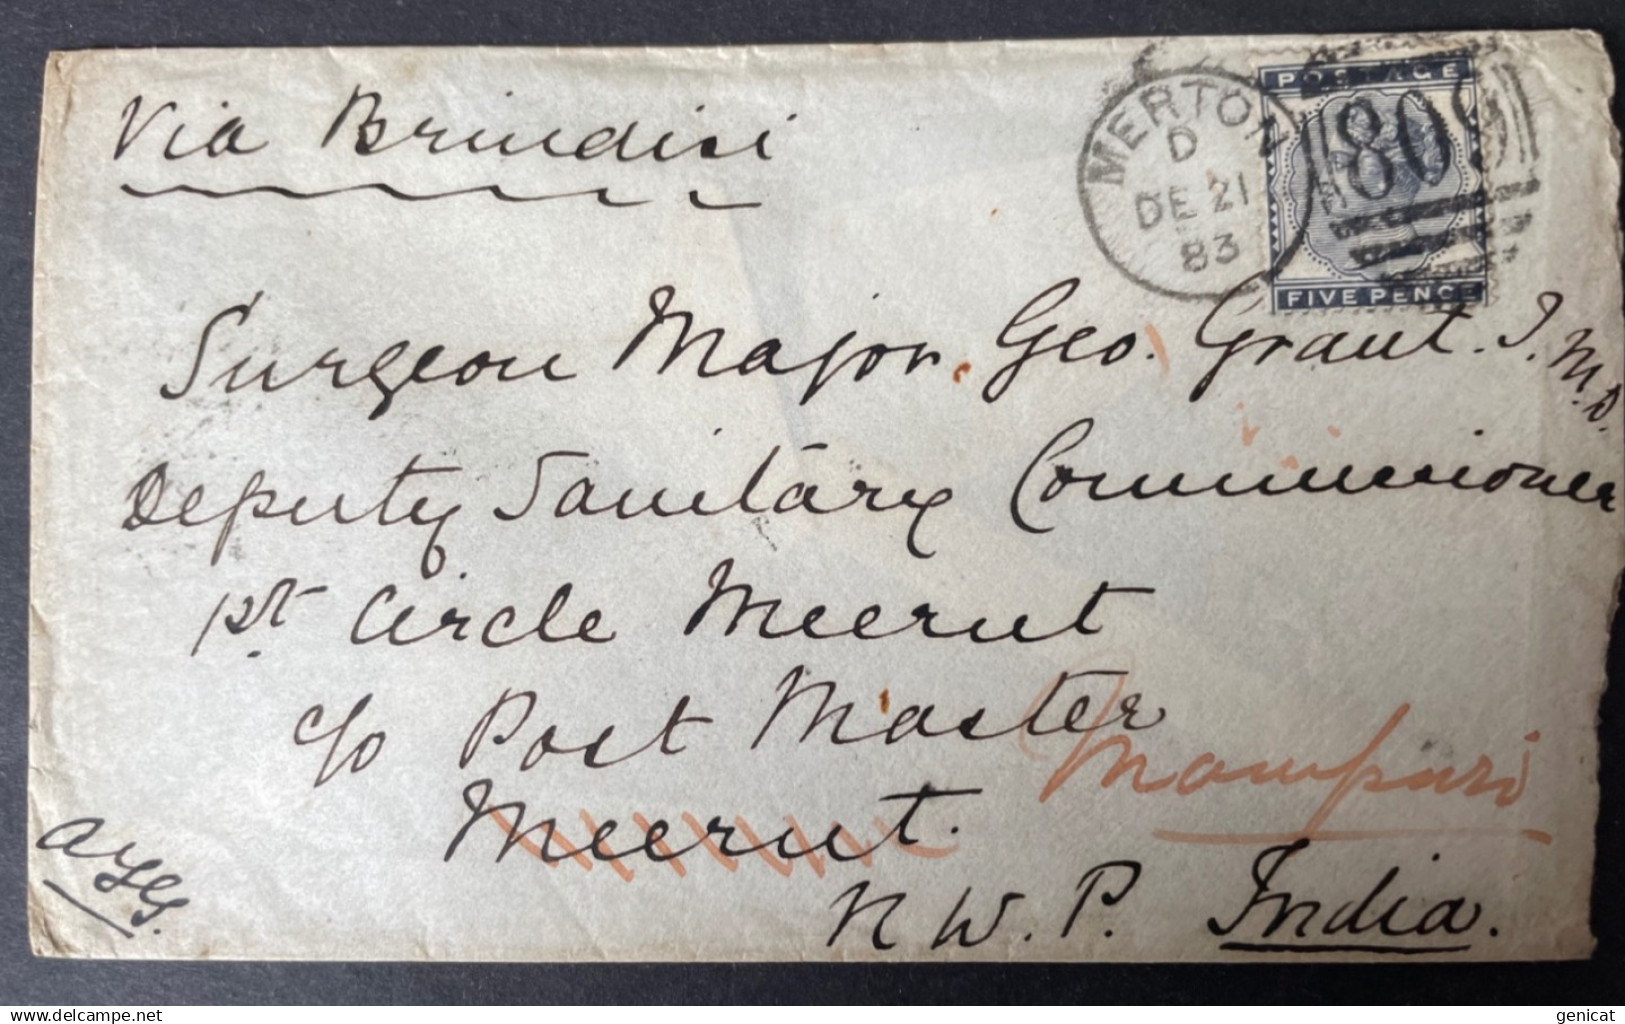 Via Brindisi
MERTON
D
DE 21
83
POSTAGE
809
FIVE PENCE
Surgeon Major. Geo. Grant. I.M.D.
Deputy Sanitary Commissioner
1st Circle Meerut
c/o Post Master
Meerut.
N W. P. India.
delcampe.net
genicat